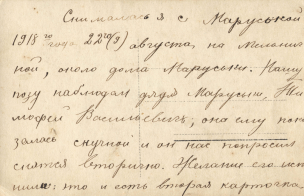 Снималась я с Маруськой
1918 го года 22го(9) августа, на Мелонич
ной, около дома Маруськи. Нашу
позу наблюдал дядя Маруськи, Ти
мофей Васильевич, она ему пока
залась скучной и он нас попросил
снятся вторично. Желание его испол
нили: это и есть вторая карточка